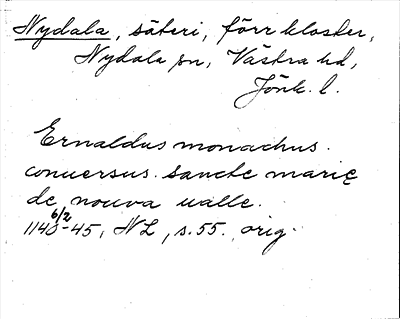 Nydala, säteri, förr kloster,
Nydala sn, Västra hd,
Jönk. l.
Ernaldus monachus.
conuersus. sancte marię
de nouua ualle.
6/2
1143-45, NL, s. 55. orig.